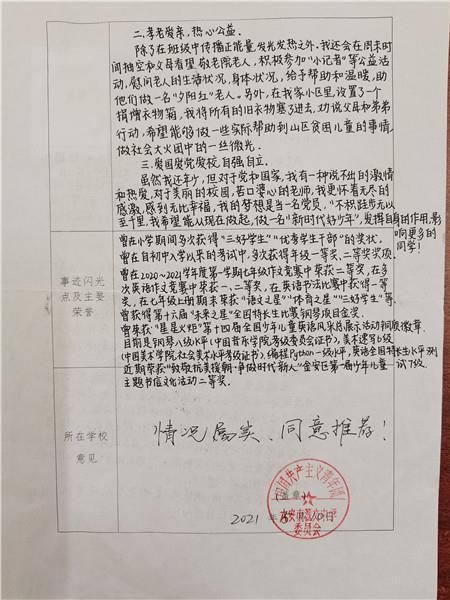 二.孝老爱亲,热心公益.
除了在班级中传播正能量发光发热之外,我还会在周末时
间抽空和父母看望敬老院老人,积极参加“小记者”等公益活
动,慰问老人的生活状况,身体状况,给予帮助和温暖,助
他们做一名“夕阳红”老人。另外,在我家小区里,设置了一个
捐赠衣物箱,我将所有的旧衣物塞了进去,劝说父母和弟弟
行动,希望能够做一些实际帮助到山区贫困儿童的事情,
做社会大火团中的一丝微光.
三.爱国爱党爱校,自强自立.
虽然我还年少,但对于党和国家,我有一种说不出的激情
和热爱,对于美丽的校园,苦口婆心的老师,我更怀着无尽的
感激,感到无比幸福,我的梦想是当一名党员,“不积跬步无以
至千里,我希望能从现在做起,做一名“新时代好少年”,发挥自身的作用,影
响更多的
同学!
事迹闪光
点及主要
荣誉
曾在小学期间多次获得“三好学生”“优秀学生干部”的奖状.
曾在自初中入学以来的考试中,多次获得年级一等奖、二等奖奖项.
曾在2020~2021学年度第一学期七年级作文竞赛中荣获二等奖,在多
次英语作文竞赛中荣获一、二等奖,在英语书法比赛中获得一等
奖,在七年级上册期末荣获“语文之星”“体育之星”“三好学生”等.
曾获得第十六届“未来之星”全国特长生比赛钢琴项目金奖.
曾荣获“星星火炬”第十四届全国少年儿童英语风采总展示活动铜质徽章.
目前是钢琴八级水平(中国音乐学院考级委员会证书),美术速写6级
(中国美术学院社会美术水平考级证书),编程Python一级水平,英语全国特长生水平测
试7级.
近期荣获“致敬抗美援朝·争做时代新人”金安区第一届少年儿童
主题书信文化活动二等奖.
所在学校
意见
情况属实、同意推荐!
盖章
中国共产主义青年团
委员会
2021年